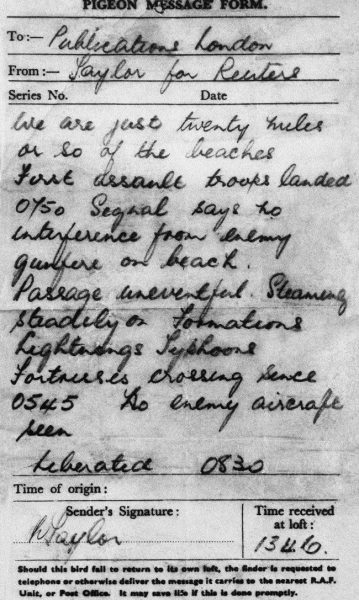 PIGEON MESSAGE FORM.
To:— Publications London
From:— Taylor for Reuters
Series No. Date
We are just twenty miles
or so of the beaches
First assault troops landed
0750 Segnal says no
interference from enemy
gunfire on beach.
Passage uneventful. Steaming
steadily on Formations
Lightnings Typhoons
Fortresses crossing since
0545 No enemy aircraft
seen
Liberated 0830
Time of origin:
Sender's Signature: Time received
at loft:
Taylor 1346.
Should this bird fail to return to its own loft, the finder is requested to
telephone or otherwise deliver the message it carries to the nearest R.A.F.
Unit, or Post Office. It may save life if this is done promptly.